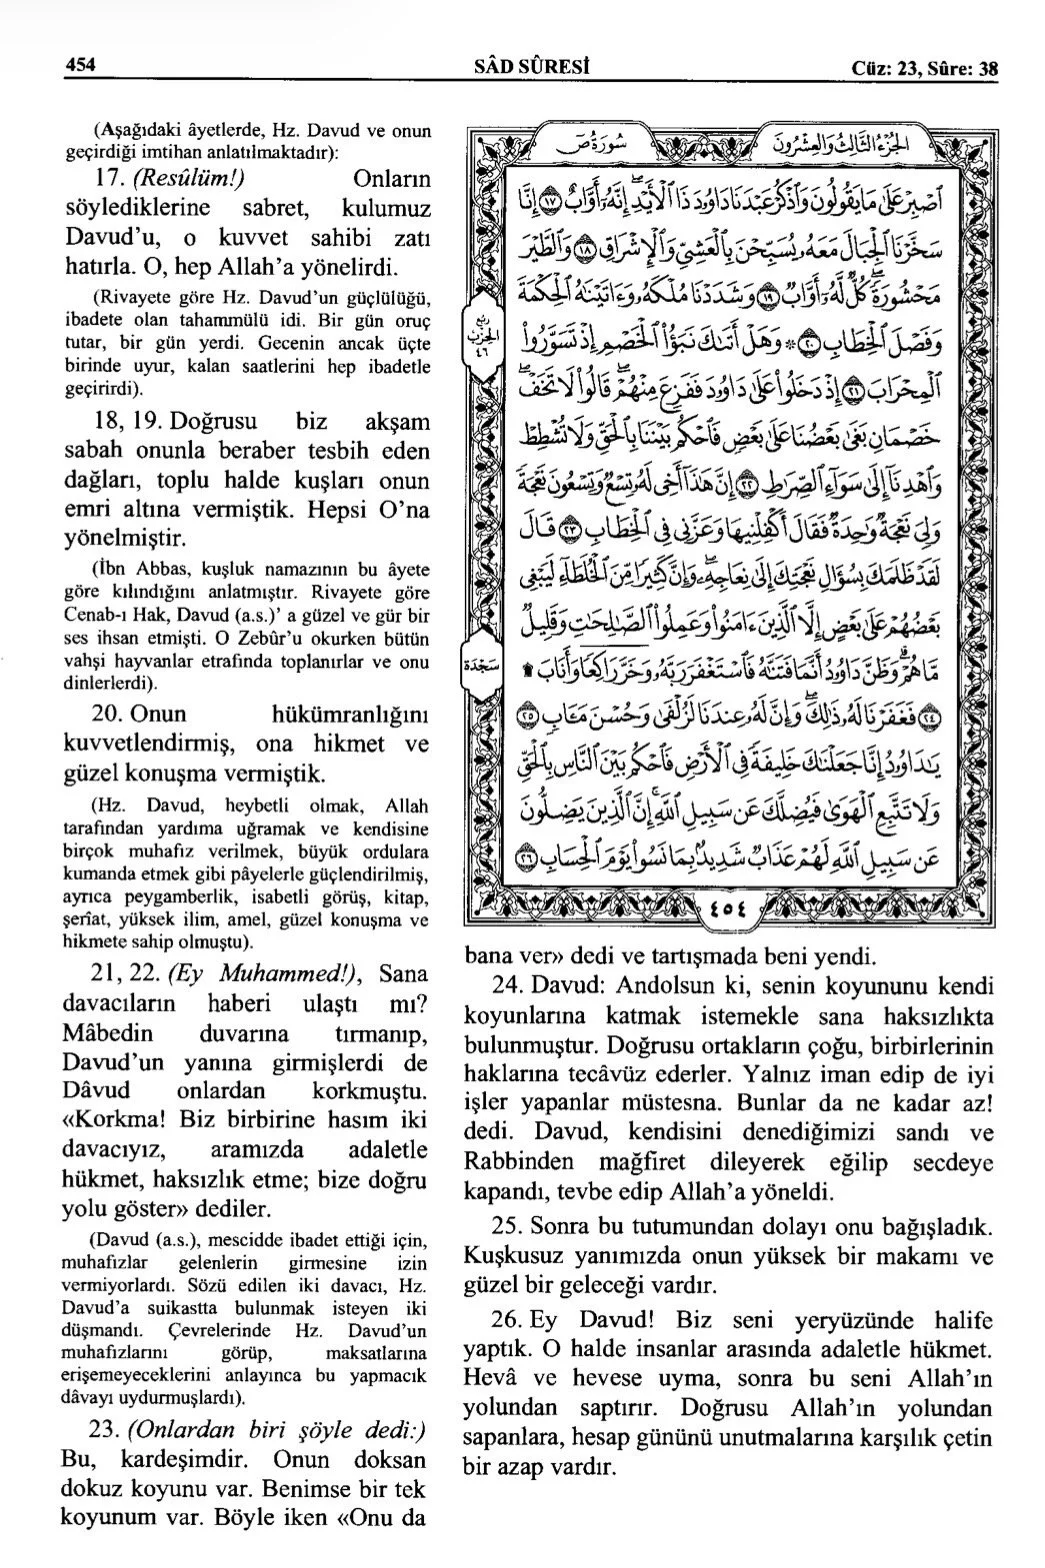 454
SÂD SÛRESİ
Cüz: 23, Sûre: 38
(Aşağıdaki âyetlerde, Hz. Davud ve onun
geçirdiği imtihan anlatılmaktadır):
17. (Resûlüm!) Onların
söylediklerine sabret, kulumuz
Davud’u, o kuvvet sahibi zatı
hatırla. O, hep Allah’a yönelirdi.
(Rivayete göre Hz. Davud’un güçlülüğü,
ibadete olan tahammülü idi. Bir gün oruç
tutar, bir gün yerdi. Gecenin ancak üçte
birinde uyur, kalan saatlerini hep ibadetle
geçirirdi).
18, 19. Doğrusu biz akşam
sabah onunla beraber tesbih eden
dağları, toplu halde kuşları onun
emri altına vermiştik. Hepsi O’na
yönelmiştir.
(İbn Abbas, kuşluk namazının bu âyete
göre kılındığını anlatmıştır. Rivayete göre
Cenab-ı Hak, Davud (a.s.)’ a güzel ve gür bir
ses ihsan etmişti. O Zebûr’u okurken bütün
vahşi hayvanlar etrafında toplanırlar ve onu
dinlerlerdi).
20. Onun hükümranlığını
kuvvetlendirmiş, ona hikmet ve
güzel konuşma vermiştik.
(Hz. Davud, heybetli olmak, Allah
tarafından yardıma uğramak ve kendisine
birçok muhafız verilmek, büyük ordulara
kumanda etmek gibi pâyelerle güçlendirilmiş,
ayrıca peygamberlik, isabetli görüş, kitap,
şerîat, yüksek ilim, amel, güzel konuşma ve
hikmete sahip olmuştu).
21, 22. (Ey Muhammed!), Sana
davacıların haberi ulaştı mı?
Mâbedin duvarına tırmanıp,
Davud’un yanına girmişlerdi de
Dâvud onlardan korkmuştu.
«Korkma! Biz birbirine hasım iki
davacıyız, aramızda adaletle
hükmet, haksızlık etme; bize doğru
yolu göster» dediler.
(Davud (a.s.), mescidde ibadet ettiği için,
muhafızlar gelenlerin girmesine izin
vermiyorlardı. Sözü edilen iki davacı, Hz.
Davud’a suikastta bulunmak isteyen iki
düşmandı. Çevrelerinde Hz. Davud’un
muhafızlarını görüp, maksatlarına
erişemeyeceklerini anlayınca bu yapmacık
dâvayı uydurmuşlardı).
23. (Onlardan biri şöyle dedi:)
Bu, kardeşimdir. Onun doksan
dokuz koyunu var. Benimse bir tek
koyunum var. Böyle iken «Onu da
الجزء الثالث والعشرون
سُورَةُ صٓ
اَصْبِرْ عَلَىٰ مَا يَقُولُونَ وَاذْكُرْ عَبْدَنَا دَاوُۥدَ ذَا الْأَيْدِ ۖ إِنَّهُۥٓ أَوَّابٌ ١٧ إِنَّا
سَخَّرْنَا الْجِبَالَ مَعَهُۥ يُسَبِّحْنَ بِالْعَشِيِّ وَالْإِشْرَاقِ ١٨ وَالطَّيْرَ
مَحْشُورَةً ۖ كُلٌّ لَهُۥٓ أَوَّابٌ ١٩ وَشَدَدْنَا مُلْكَهُۥ وَءَاتَيْنَٰهُ الْحِكْمَةَ
وَفَصْلَ الْخِطَابِ ٢٠ * وَهَلْ أَتَىٰكَ نَبَؤُا الْخَصْمِ إِذْ تَسَوَّرُوا
الْمِحْرَابَ ٢١ إِذْ دَخَلُوا عَلَىٰ دَاوُۥدَ فَفَزِعَ مِنْهُمْ ۖ قَالُوا لَا تَخَفْ ۖ
خَصْمَانِ بَغَىٰ بَعْضُنَا عَلَىٰ بَعْضٍ فَاحْكُم بَيْنَنَا بِالْحَقِّ وَلَا تُشْطِطْ
وَاهْدِنَآ إِلَىٰ سَوَآءِ الصِّرَٰطِ ٢٢ إِنَّ هَٰذَآ أَخِي لَهُۥ تِسْعٌ وَتِسْعُونَ نَعْجَةً
وَلِيَ نَعْجَةٌ وَٰحِدَةٌ فَقَالَ أَكْفِلْنِيهَا وَعَزَّنِي فِي الْخِطَابِ ٢٣ قَالَ
لَقَدْ ظَلَمَكَ بِسُؤَالِ نَعْجَتِكَ إِلَىٰ نِعَاجِهِۦ ۖ وَإِنَّ كَثِيرًا مِّنَ الْخُلَطَآءِ لَيَبْغِي
بَعْضُهُمْ عَلَىٰ بَعْضٍ إِلَّا الَّذِينَ ءَامَنُوا وَعَمِلُوا الصَّٰلِحَٰتِ وَقَلِيلٌ
مَّا هُمْ ۗ وَظَنَّ دَاوُۥدُ أَنَّمَا فَتَنَّٰهُ فَاسْتَغْفَرَ رَبَّهُۥ وَخَرَّ رَاكِعًا وَأَنَابَ ۩
٢٤ فَغَفَرْنَا لَهُۥ ذَٰلِكَ ۖ وَإِنَّ لَهُۥ عِندَنَا لَزُلْفَىٰ وَحُسْنَ مَـَٔابٍ ٢٥
يَٰدَاوُۥدُ إِنَّا جَعَلْنَٰكَ خَلِيفَةً فِي الْأَرْضِ فَاحْكُم بَيْنَ النَّاسِ بِالْحَقِّ
وَلَا تَتَّبِعِ الْهَوَىٰ فَيُضِلَّكَ عَن سَبِيلِ اللَّهِ ۚ إِنَّ الَّذِينَ يَضِلُّونَ
عَن سَبِيلِ اللَّهِ لَهُمْ عَذَابٌ شَدِيدٌۢ بِمَا نَسُوا يَوْمَ الْحِسَابِ ٢٦
ربع
الحزب
٤٦
سجدة
٤٥٤
bana ver» dedi ve tartışmada beni yendi.
24. Davud: Andolsun ki, senin koyununu kendi
koyunlarına katmak istemekle sana haksızlıkta
bulunmuştur. Doğrusu ortakların çoğu, birbirlerinin
haklarına tecâvüz ederler. Yalnız iman edip de iyi
işler yapanlar müstesna. Bunlar da ne kadar az!
dedi. Davud, kendisini denediğimizi sandı ve
Rabbinden mağfiret dileyerek eğilip secdeye
kapandı, tevbe edip Allah’a yöneldi.
25. Sonra bu tutumundan dolayı onu bağışladık.
Kuşkusuz yanımızda onun yüksek bir makamı ve
güzel bir geleceği vardır.
26. Ey Davud! Biz seni yeryüzünde halife
yaptık. O halde insanlar arasında adaletle hükmet.
Hevâ ve hevese uyma, sonra bu seni Allah’ın
yolundan saptırır. Doğrusu Allah’ın yolundan
sapanlara, hesap gününü unutmalarına karşılık çetin
bir azap vardır.